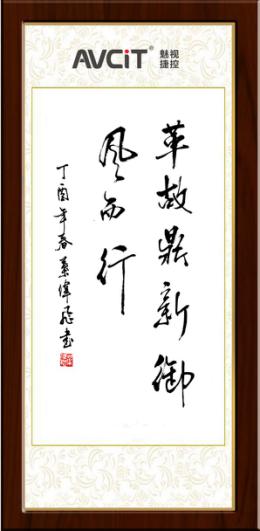 AVCiT®
魅视
捷控
革故鼎新御
风而行
丁酉年春